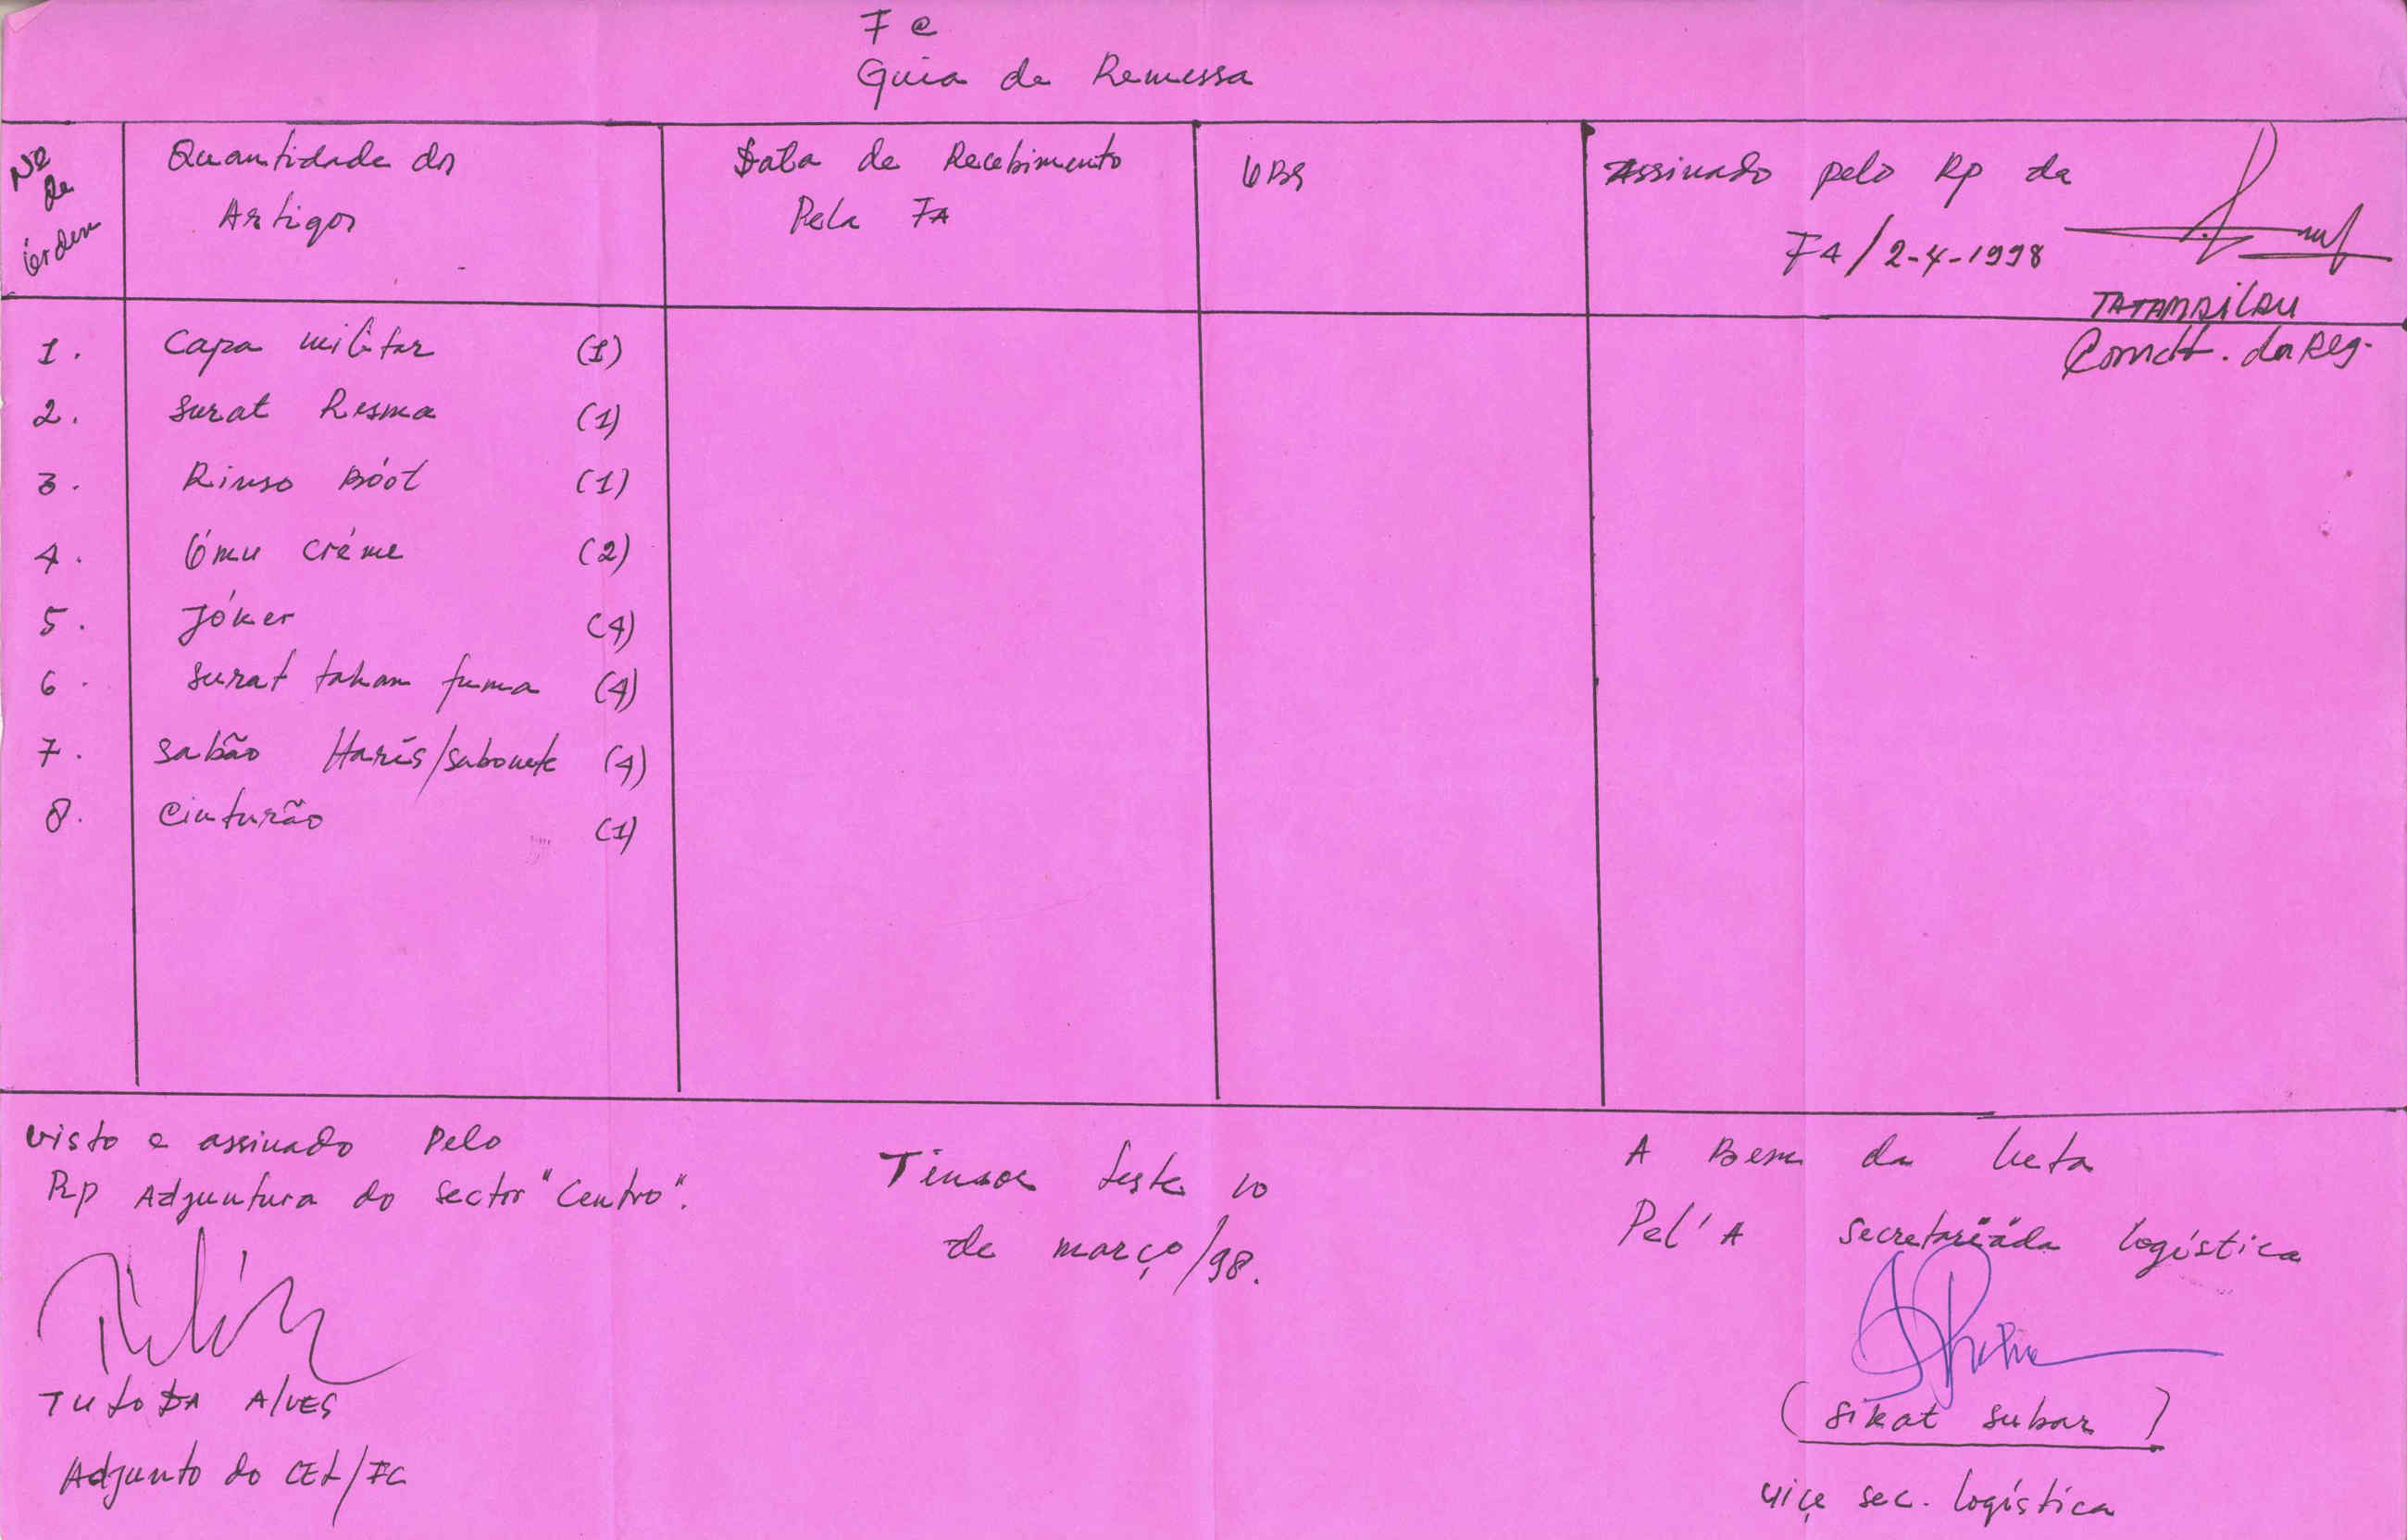 FC
Guia de Remessa
Nº
de
órdem
Quantidade dos
Artigos
Data de Recebimento
Pela FA
OBS
Assinado pelo Rp da
FA/2-4-1998
TATAMAILAU
Comdt. da Reg.
1. Capa militar (1)
2. Surat Resma (1)
3. Rinso Bóot (1)
4. Ómu créme (2)
5. Jóker (4)
6. Surat tahan fuma (4)
7. Sabão Harís/sabonete (4)
8. Cinturão (1)
Visto e assinado Pelo
Rp Adjuntura do Sector "Centro".
TULODA ALVES
Adjunto do CEL/FC
Timor Leste 10
de março/98.
A Bem da Luta
Pel'A Secretaria da logística
(Sikat Subar)
Viçe sec. logística